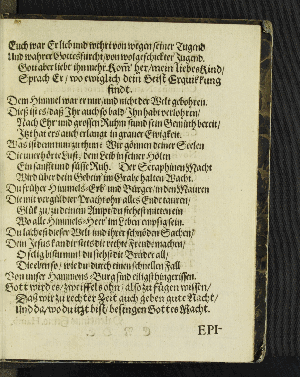 Euch war Er lieb und wehrt von wegen seiner Tugend
Und wahrer Gottesfurcht/ von wolgeschickter Jugend.
Gott aber liebt ihn mehr. Kom her/ mein liebes Kind/
Sprach Er/ wo ewiglich dein Geist Erquikkung
findt.
Dem Himmel war er nur/ und nicht der Welt gebohren.
Dieß ist es/ daß Ihr auch so bald Ihn habt verlohren/
Nach Ehr und grossen Ruhm stund sein Gemüth bereit/
Itzt hat ers auch erlangt in grauer Ewigkeit.
Was ist denn nun zu thun? Wir gönnen deiner Seelen
Die unerhörte Lust/ dem Leib in seiner Hölen
Ein sanfft und süsse Ruh. Der Seraphinen Macht
Wird über dein Gebein' im Grabe halten Wacht.
Du früher Himmels-Erb' und Bürger/ in den Mauren
Die mit vergüldter Pracht ohn alles Ende tauren/
Glük zu/ zu deinem Ampt/ du stehest mitten ein
Wo alle Himmels-Herr' im Leben empfig seyn.
Du lachest dieser Welt und ihrer schnöden Sachen/
Dein Jesus kan dir stets die rechte Freude machen/
O selig bist nun! du siehst die Brüder all/
Die eben so/ wie du/ durch einen schnellen Fall
Von unser Hammons-Burg sind eiligst hingerissen.
Gott wird es/ zweiffels ohn/ also zu fügen wissen/
Daß wir zu rechter Zeit auch geben gute Nacht/
Und da/ wo du itzt bist/ besingen Gottes Macht.
EPI-